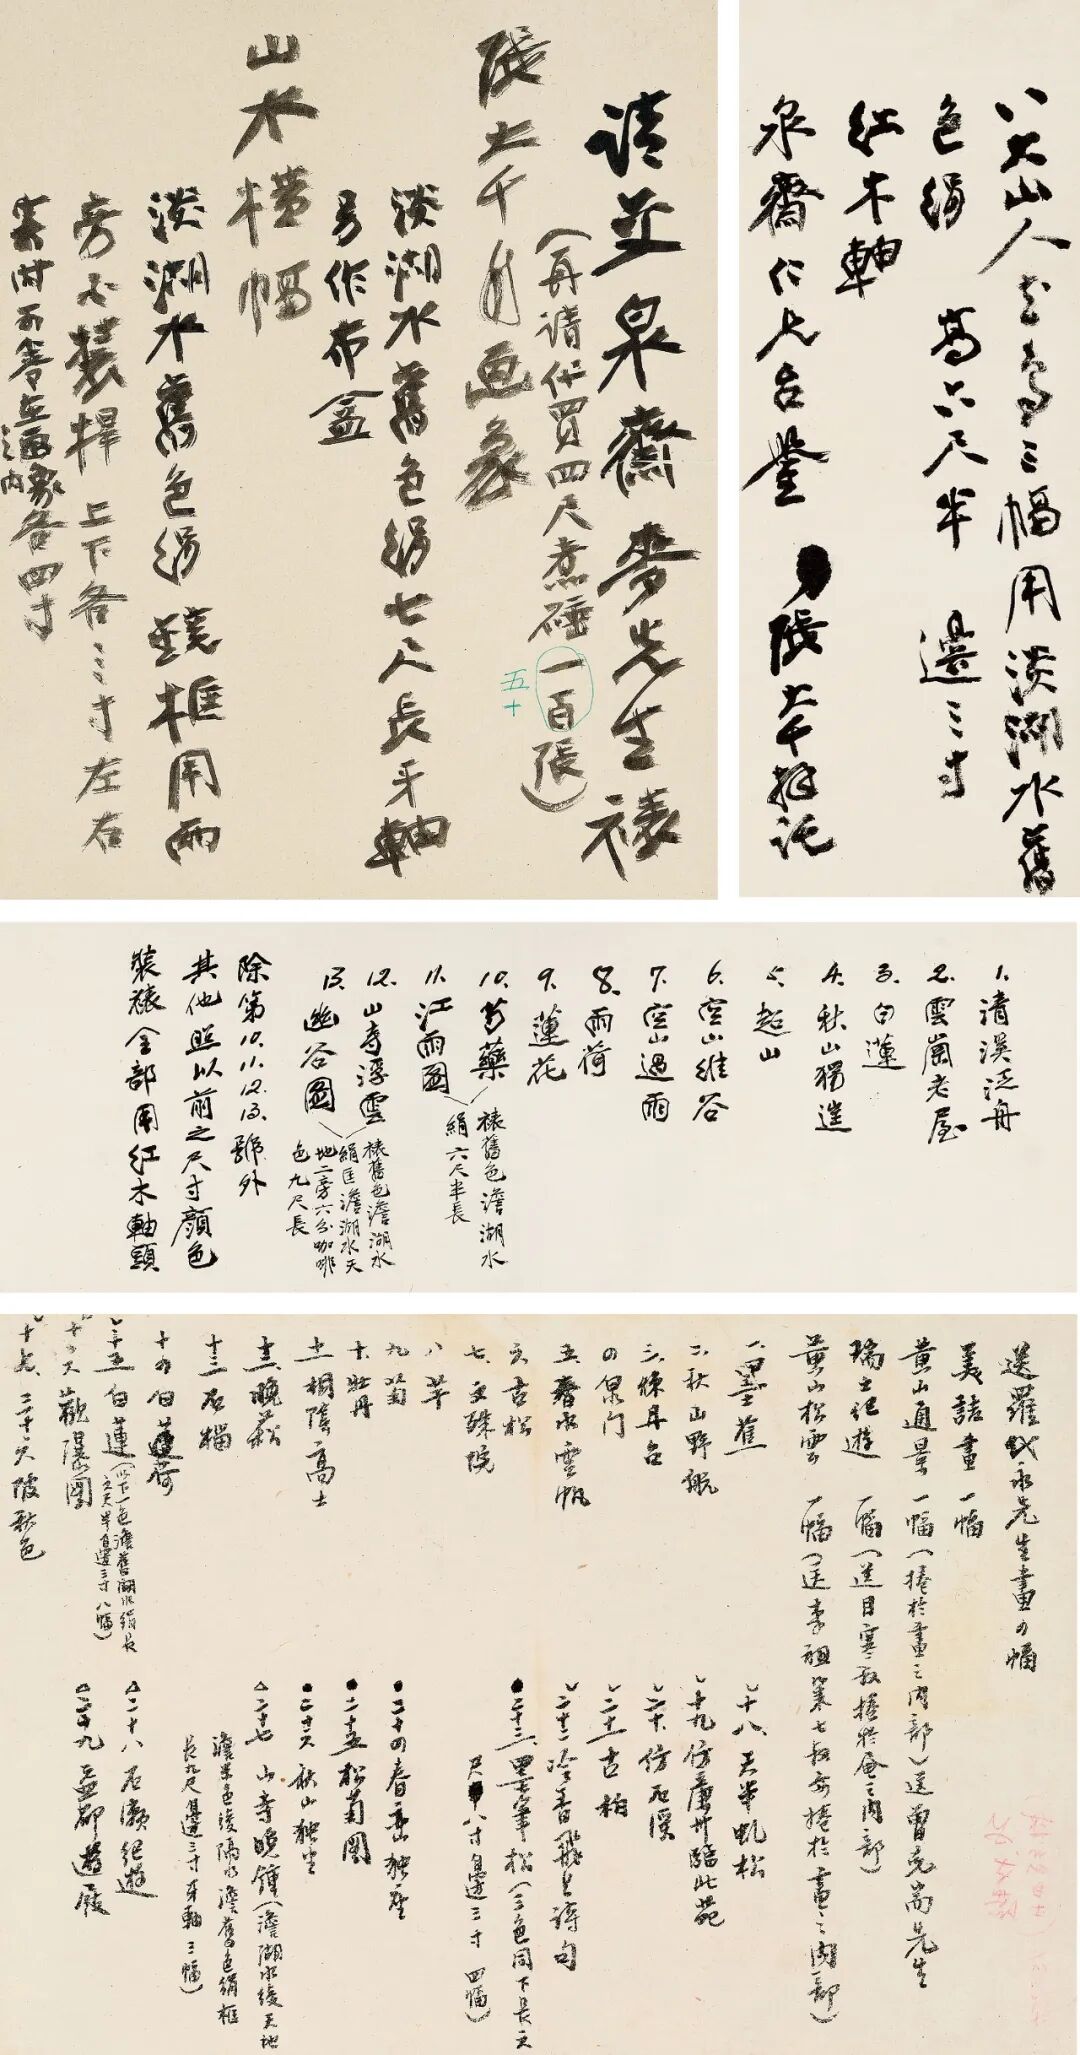 請並泉齋麥先生裱
(再請代買四尺煮硾一百張)
五十
張大千自畫象
淡湖水舊色絹七尺長牙軸
另作布盒
山水橫幅
淡湖水舊色絹 鏡框用兩
旁不裝桿 上下各三寸左右
各四寸
八大山人花鳥三幅用淡湖水舊
色絹 高六尺半 邊三寸
紅木軸
泉齋仁兄台鑒 張大千拜託
1. 清溪泛舟
2. 雲嵐老屋
3. 白蓮
4. 秋山獨造
5. 超山
6. 空山維谷
7. 空山過雨
8. 雨荷
9. 蓮花
10. 芍藥
11. 江雨圖
裱舊色澹湖水
絹六尺半長
12. 山寺浮雲
13. 幽谷圖
裱舊色澹湖水
絹匡澹湖水天
地二旁六分咖啡
色九尺長
除第10.11.12.13.號外
其他照以前之尺寸顏色
裝裱全部用紅木軸頭
送羅 永先生畫の幅
美諾畫一幅
黃山通景一幅(捲於畫之內部)送曾克耑先生
瑞士紀遊 一幅(送目寒 捲於 之內部)
黃山松雲 一幅(送李祖萊七 捲於畫之內部)
一.墨蕉
二.秋山野航
三.煉丹台
の.泉门
五.春水雲帆
六.古松
七.文殊院
八.芋
九.菊
十.牡丹
十一.桐陰高士
十二.晚菘
十三.石榴
十の.白荷
十五.白蓮(四下一色澹舊湖水絹長
文六半邊三寸八幅)
十六.觀瀑圖
十七. 秋色
十八.天半虬松
十九.仿 州臨北苑
二十.仿石溪
二十一.古柏
二十二.冷香飛上詩句
二十三.墨筆松(三色同下長六
尺 八寸邊三寸 四幅)
二十の.春 独
二十五.松菊圖
二十六.秋山独坐
二十七.山寺晚鐘(澹湖水綾天地
澹米色綾隔水澹舊色絹框
長九尺邊三寸牙軸三幅)
二十八.石瀨紀遊
二十九.益都遊屐